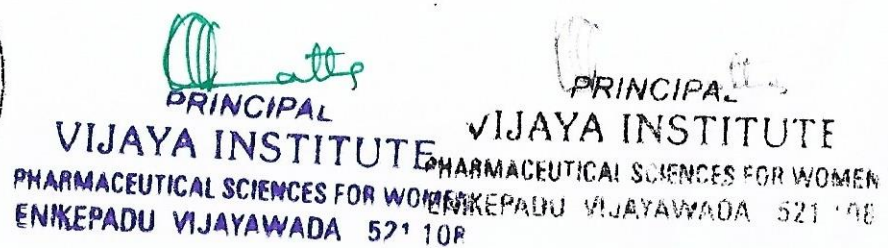 PRINCIPAL
VIJAYA INSTITUTE
PHARMACEUTICAL SCIENCES FOR WOMEN
ENIKEPADU VIJAYAWADA 521 108
PRINCIPAL
VIJAYA INSTITUTE
PHARMACEUTICAL SCIENCES FOR WOMEN
ENIKEPADU VIJAYAWADA 521 108